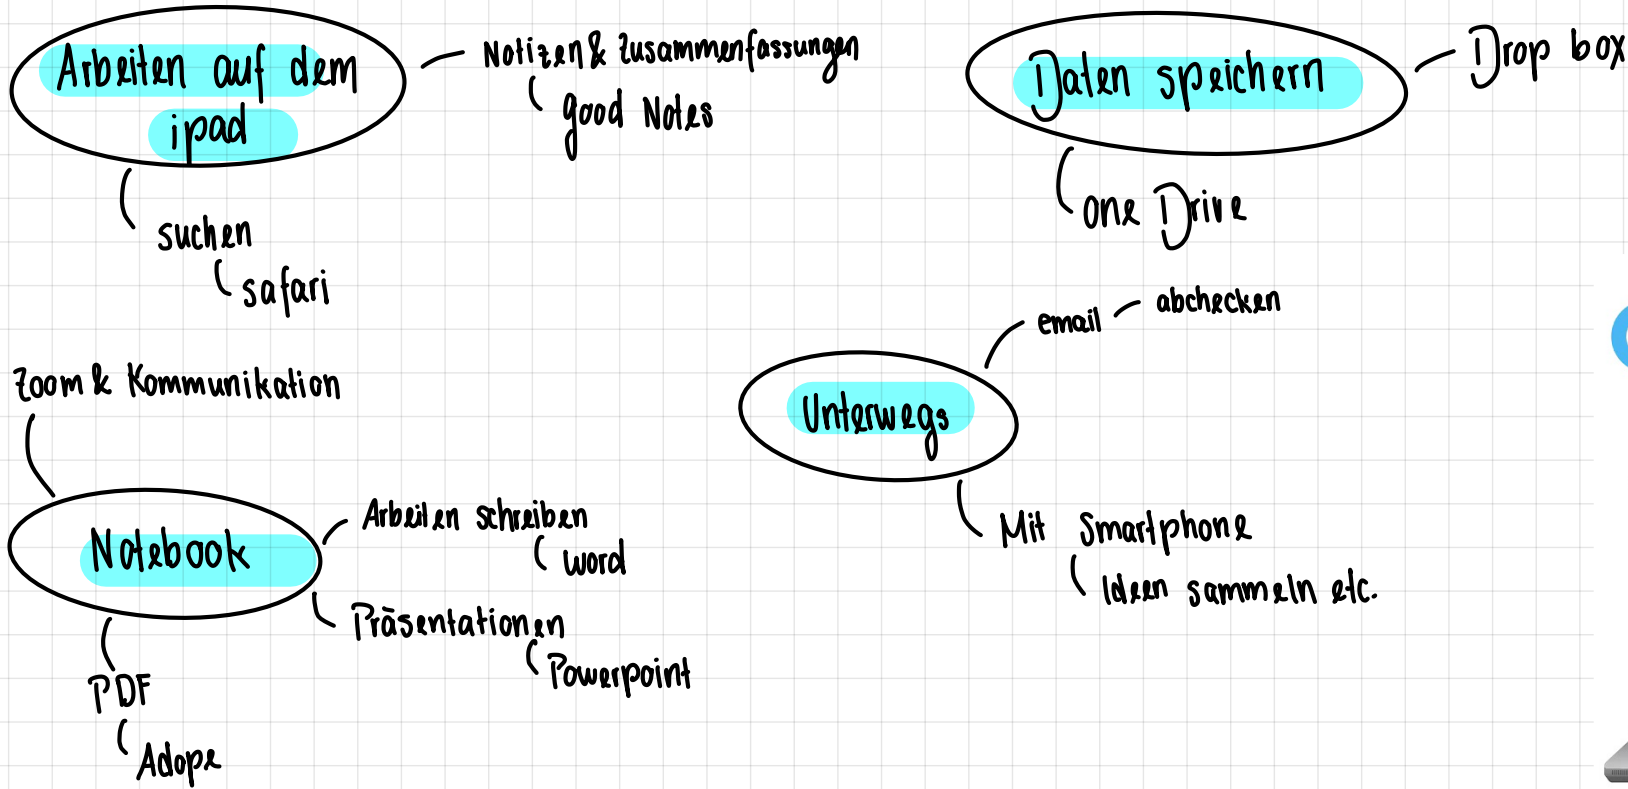 Arbeiten auf dem
ipad
Notizen & Zusammenfassungen
good Notes
suchen
safari
Daten speichern
Drop box
one Drive
Zoom & Kommunikation
Notebook
Arbeiten schreiben
word
Präsentationen
Powerpoint
PDF
Adope
Unterwegs
email
abchecken
Mit Smartphone
Ideen sammeln etc.